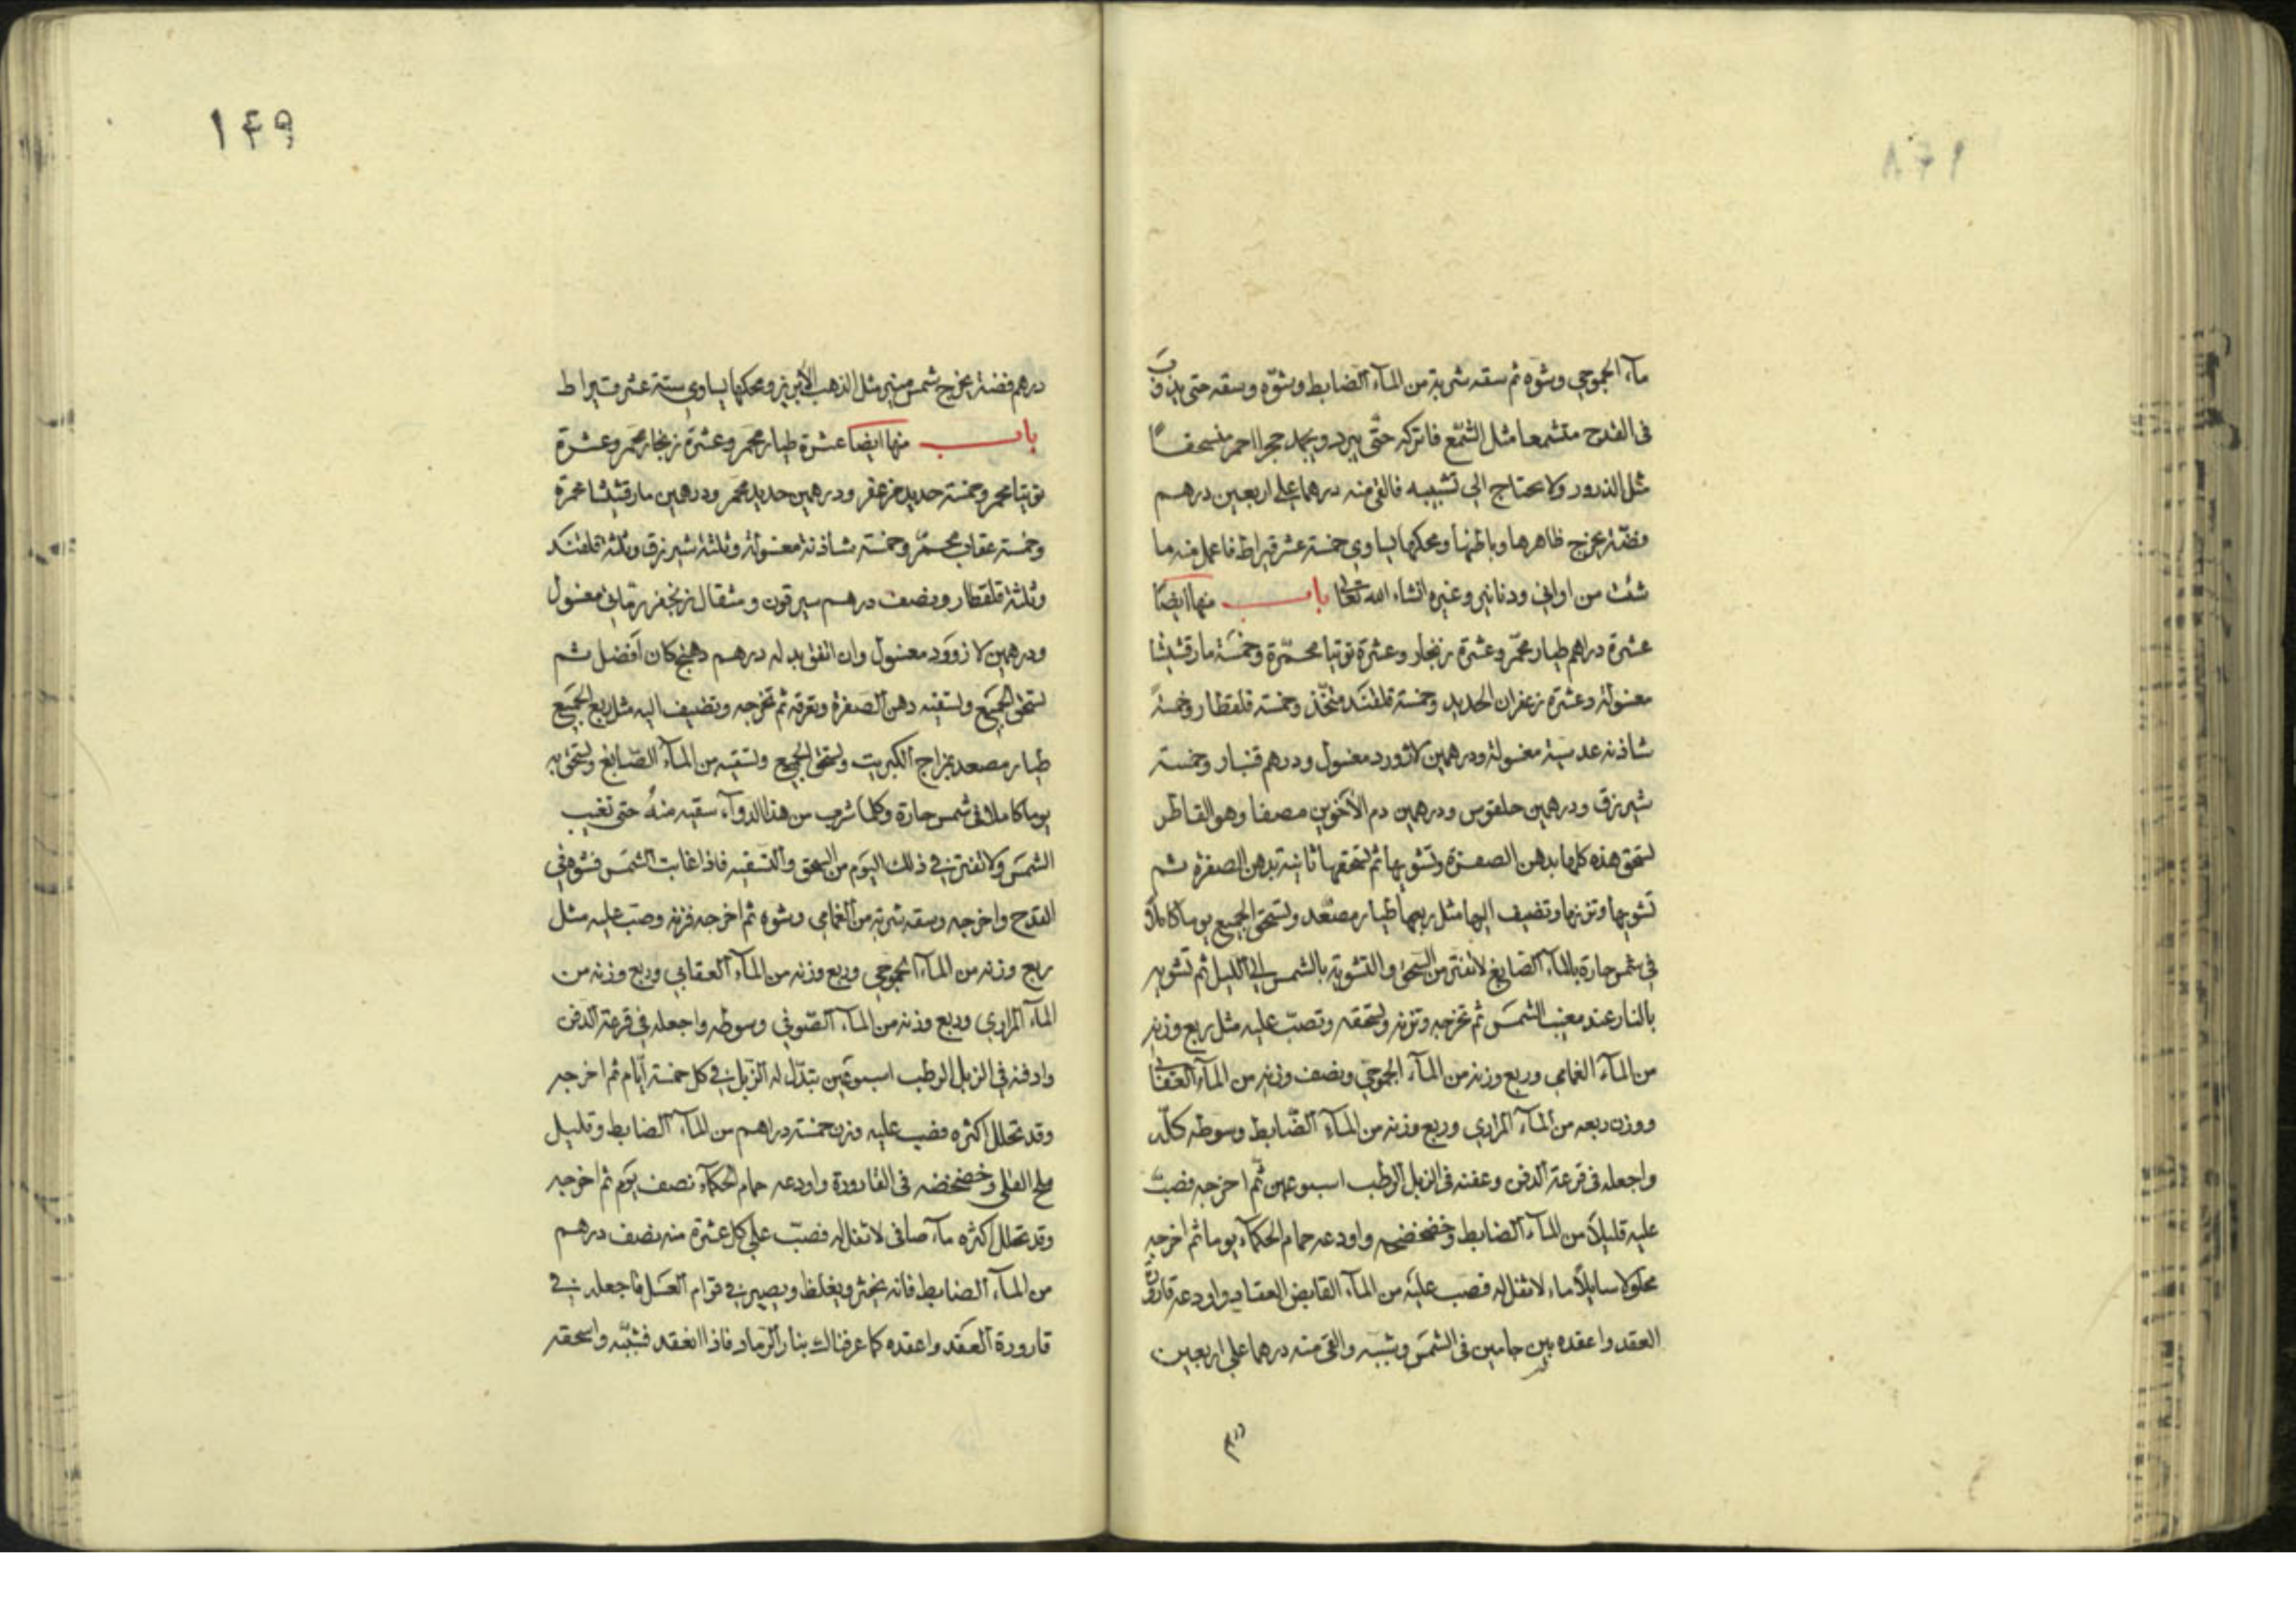 ماء الجموحي وشوه ثم سقه شربة من الماء الضابط وشوّه وسقه حتى يذوب
فى القدح متشمعا مثل الشمع فاتركه حتى يبرد ويجمد حجرا احمر منسحقا
مثل الذرور ولا يحتاج الى تشبيبه فالقى منه درهما على اربعين درهم
فضّة يخرج ظاهرها وباطنها ومحكها يساوي خمسة عشر قيراط فاعمل منه ما
شئت من اوانى ودنانير وغيره انشاء الله تعالى باب منها ايضا
عشرة دراهم طيار محمّر وعشرة زنجار وعشرة توتيا محمّرة وخمسة مارقشيشا
مغسولة وعشرة زعفران الحديد وخمسة قلقند متخذ وخمسة قلقطار وخمسة
شاذنه عدسية مغسولة ودرهمين لازورد مغسول ودرهم قنبار وخمسة
شيرزق ودرهمين حلقوس ودرهمين دم الأخوين مصفا وهو القاطر
تسحق هذه كلها بدهن الصفرة وتشويها ثم تسحقها ثانية بدهن الصفرة ثم
تشويها وتزنها وتضيف اليها مثل ربعها طيار مصعّد وتسحق الجميع يوما كاملاً
في شمس حارة بالماء الصابغ لا تفتر من السحق والتشوية بالشمس الى الليل ثم تشويه
بالنار عند مغيب الشمس ثم تخرجه وتزنه وتسحقه وتصبّ عليه مثل ربع وزنه
من الماء الغمامي وربع وزنه من الماء الجموحي ونصف وزنه من الماء العقابى
ووزن ربعه من الماء المراري وربع وزنه من الماء الضّابط وسوطه كلّه
واجعله فى قرعة الدفن وعفنه فى الزبل الرطب اسبوعين ثم اخرجه فصبّ
عليه قليلاً من الماء الضابط وخضخضه واودعه حمام الحكماء يوما ثم اخرجه
محلولا سايلاً ماء لا ثفل له فصب عليه من الماء القابض العقابي واودعه قارورة
العقد واعقده بين جامين فى الشمس وشببه والقى منه درهما على اربعين
درهم
١٤٩
درهم فضة يخرج شمس منير مثل الذهب الأبريز ومحكها يساوي ستة عشر قيراط
باب منها ايضا عشرة طيار محمر وعشرة زنجار محمر وعشرة
توتيا محمر وخمسة حديد مزعفر ودرهمين حديد محمر ودرهمين مارقشيشا محمرة
وخمسة عقاب محمّر وخمسة شاذنة مغسولة وثلثة شيرزق وثلثة قلقند
وثلثة قلقطار ونصف درهم سيرقون ومثقال زنجفر رمانى مغسول
ودرهمين لازوَرد مغسول وان اتفق بدله درهم دهنج كان أفضل ثم
تسحق الجميع وتسقيه دهن الصفرة وتعرقه ثم تخرجه وتضيف اليه مثل ربع الجميع
طيار مصعد بزاج الكبريت وتسحق الجميع وتسقيه من الماء الصّابغ وتسحق به
يوما كاملا فى شمس حارة وكلما شرب من هذا الدوآء سقيه منه حتى تغيب
الشمس ولا تفتر في ذلك اليوم من السحق والتسقيه فاذا غابت الشمس فشوه فى
القدح واخرجه وسقه شربة من الغمامي وشوه ثم اخرجه فزنه وصبّ عليه مثل
ربع وزنه من الماء الجموحي وربع وزنه من الماء العقابي وربع وزنه من
الماء المراري وربع وزنه من الماء الصّوفي وسوطه واجعله في قرعة الدفن
وادفنه في الزبل الرطب اسبوعين تبدّل له الزبل في كل خمسة أيّام ثم اخرجه
وقد تحلل اكثره فصب عليه وزن خمسة دراهم من الماء الضابط وقليل
ملح القلى وخضخضه فى القارورة واودعه حمام الحكماء نصف يوم ثم اخرجه
وقد تحلل اكثره ماء صافى لا ثفل له فصبّ على كل عشرة منه نصف درهم
من الماء الضابط فانه يخثر ويغلظ ويصير في قوام العسل فاجعله في
قارورة العقد واعقده كما عرفناك بنار الرماد فاذا انعقد فشبّبه واسحقه